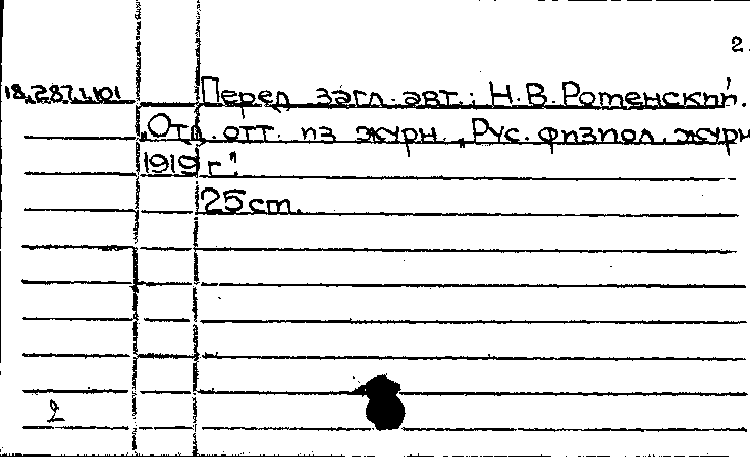 2.
18.287.1.101 Перед загл. авт.: Н.В.Ротенский.
„Отд. отт. из журн „Рус. физиол. журн
1919 г."
25 cm.
2